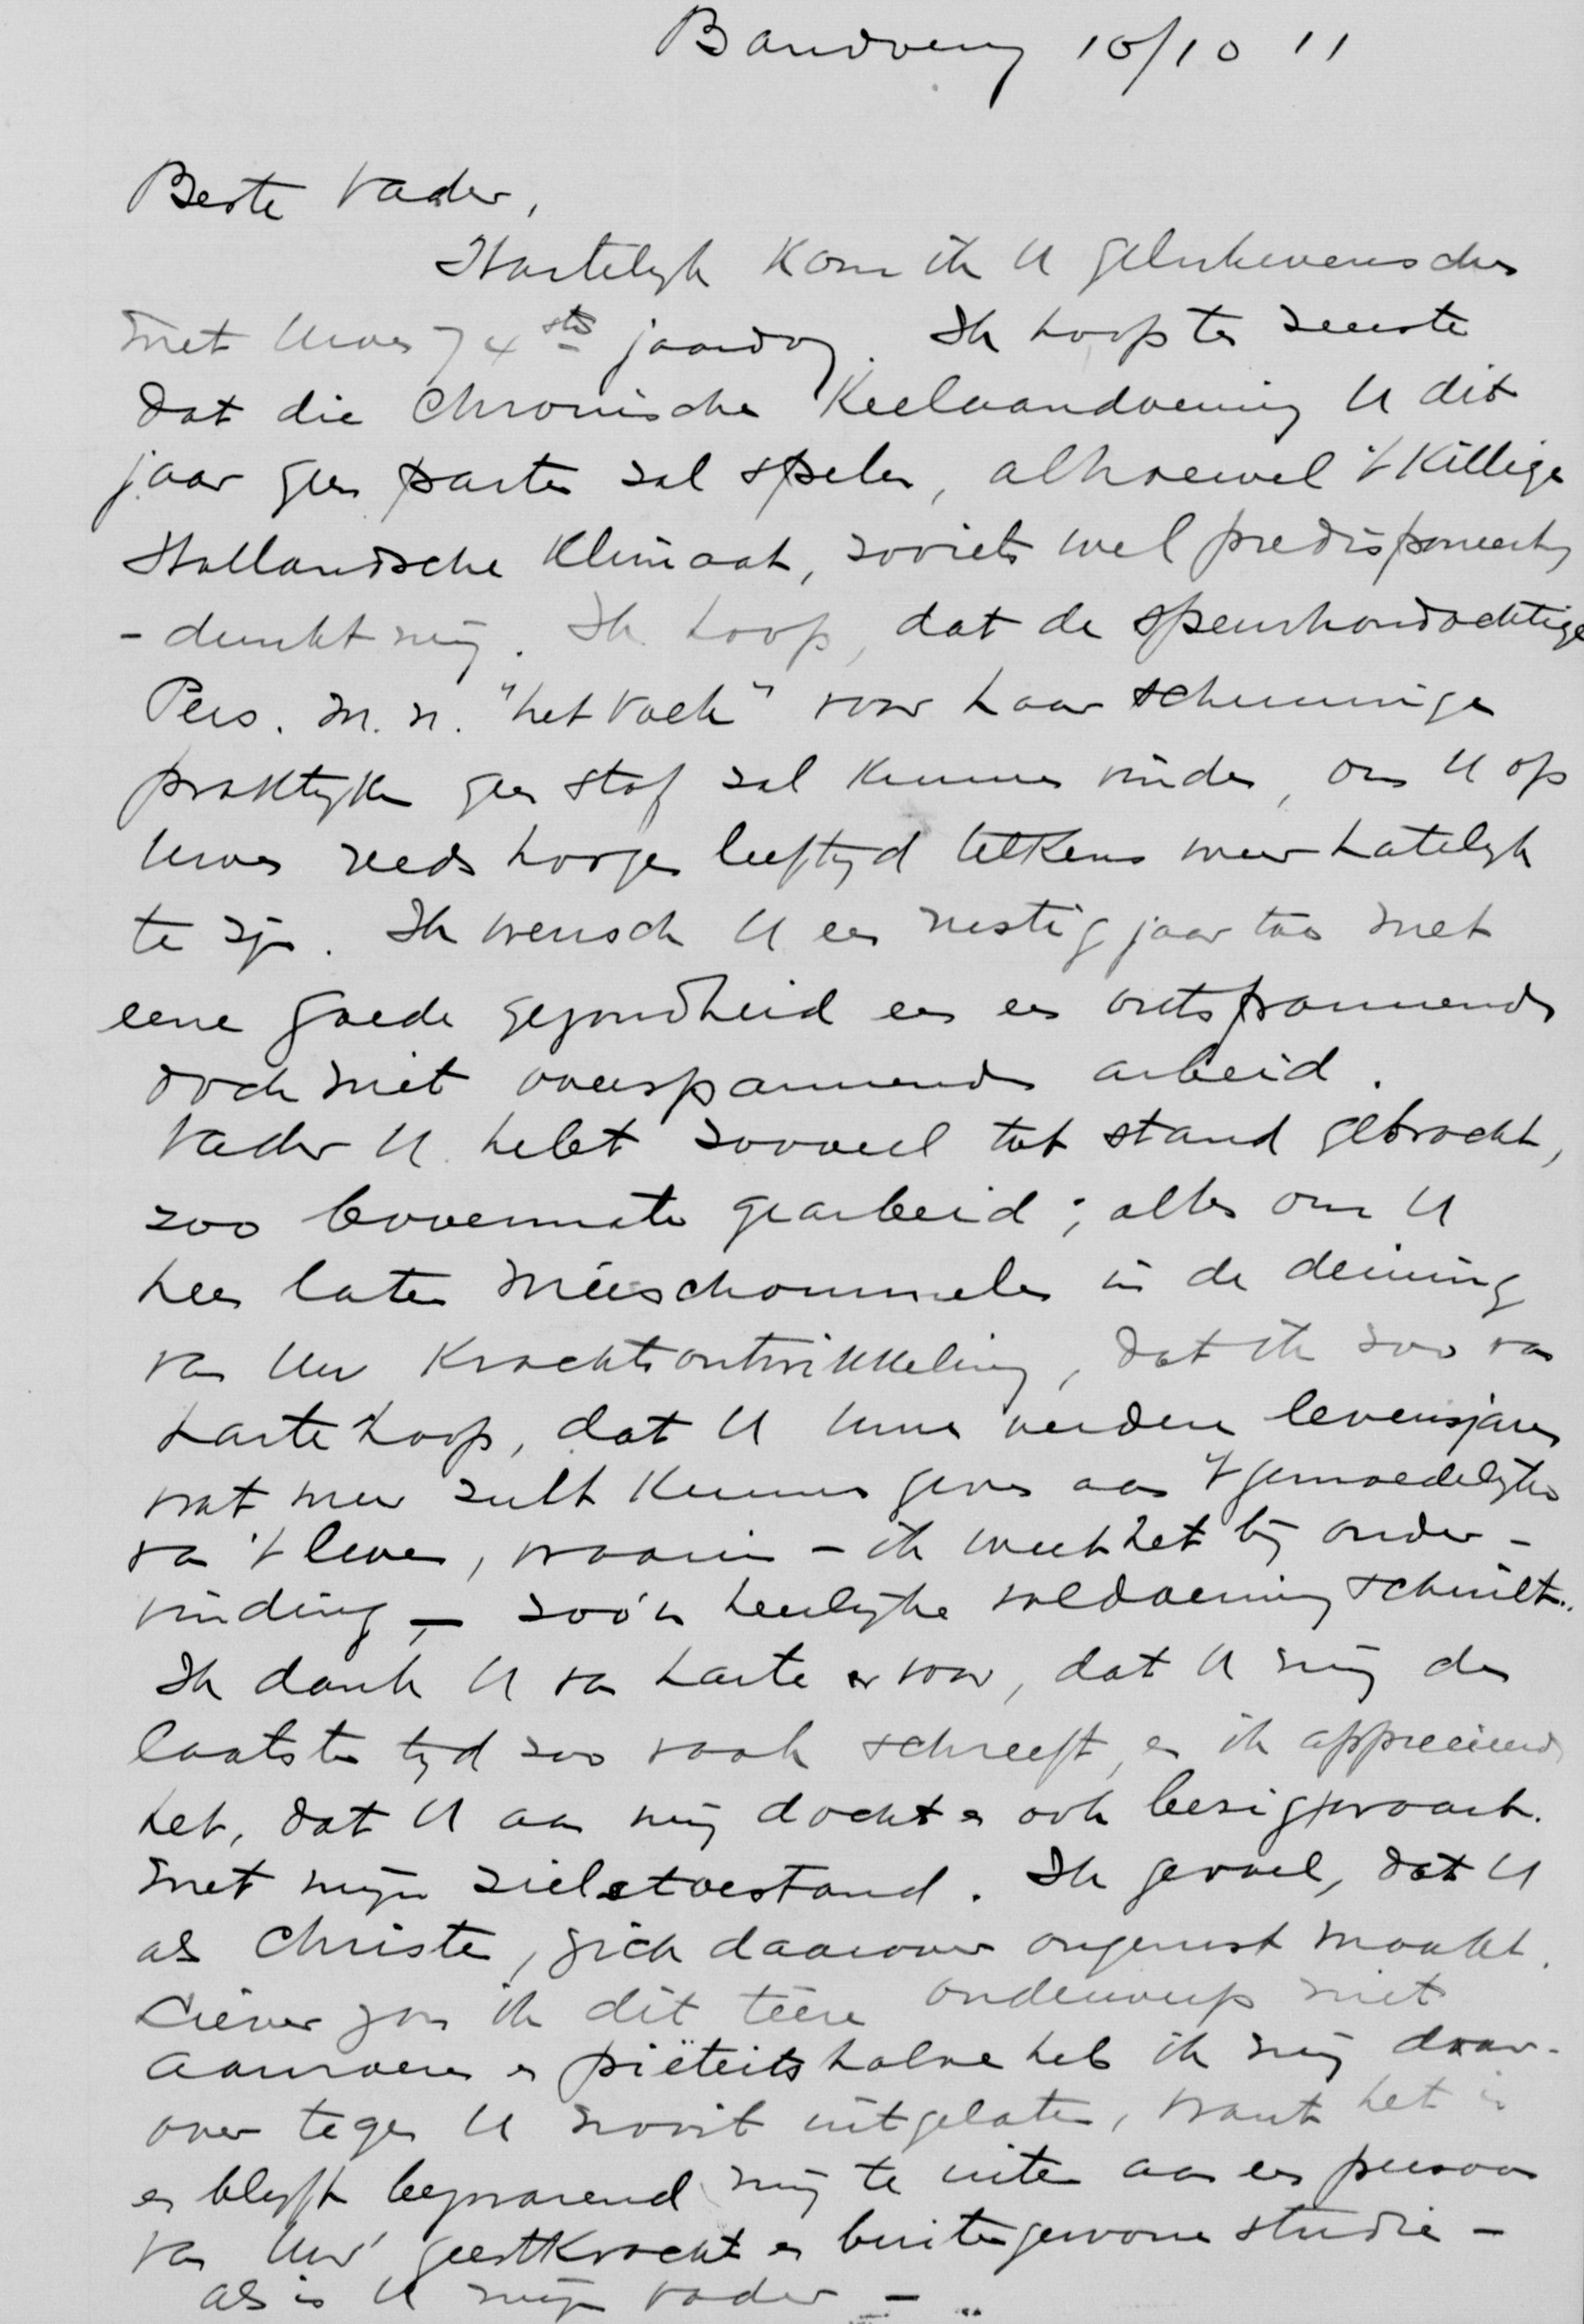 Bandoeng 10/10 11
Beste Vader,
Hartelijk kom ik U gelukwenschen
met Uwen 74sten jaardag. Ik hoop ten zeerste
dat die chronische Keelaandoening U dit
jaar geen parten zal spelen, alhoewel 't killige
Hollandsche klimaat, zooiets wel predisponeert,
- dunkt mij. Ik hoop, dat de speurhondachtige
Pers. m. n. "het Volk" voor haar schunnige
praktijken geen stof zal kunnen vinden, om U op
Uwen reeds hoogen leeftijd telkens weer hatelijk
te zijn. Ik wensch U een rustig jaar toe met
eene goede gezondheid en een ontspannende
doch niet overspannende arbeid.
Vader U hebt zooveel tot stand gebracht,
zoo bovenmate gearbeid; alles om U
heen laten méeschommelen in de deining
van Uw Krachtsontwikkeling, dat ik zoo van
harte hoop, dat U Uwe verdere levensjaren
wat meer zult kunnen geven aan 't gemoedelijke
van 't leven, waarin - ik weet het bij onder-
vinding - zoo'n heerlijke voldoening schuilt.
Ik dank U van harte er voor, dat U mij den
laatsten tijd zoo vaak schreeft, en ik apprecieerde
het, dat U aan mij dacht en ook bezig waart.
met mijn zielstoestand. Ik gevoel, dat U
als Christen, zich daarover ongerust maakt.
Liever zou ik dit teere onderwerp niet
aanroeren en piëteitshalve heb ik mij daar-
over tegen U nooit uitgelaten, want het is
en blijft bezwarend mij te uiten aan een persoon
van Uw geestkracht en buitengewone studie -
als is U mijn vader -